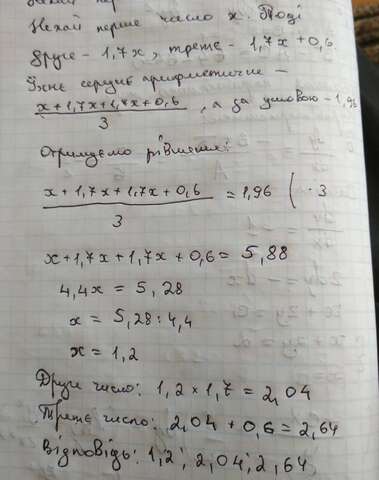 Нехай перше число x. Тоді
друге - 1,7x, третє - 1,7x + 0,6.
Їхнє середнє арифметичне -
x + 1,7x + 1,7x + 0,6
3
, а за умовою - 1,96
Отримуємо рівняння:
x + 1,7x + 1,7x + 0,6
3
= 1,96 | · 3
x + 1,7x + 1,7x + 0,6 = 5,88
4,4x = 5,28
x = 5,28 : 4,4
x = 1,2
Друге число: 1,2 × 1,7 = 2,04
Третє число: 2,04 + 0,6 = 2,64
Відповідь: 1,2; 2,04; 2,64